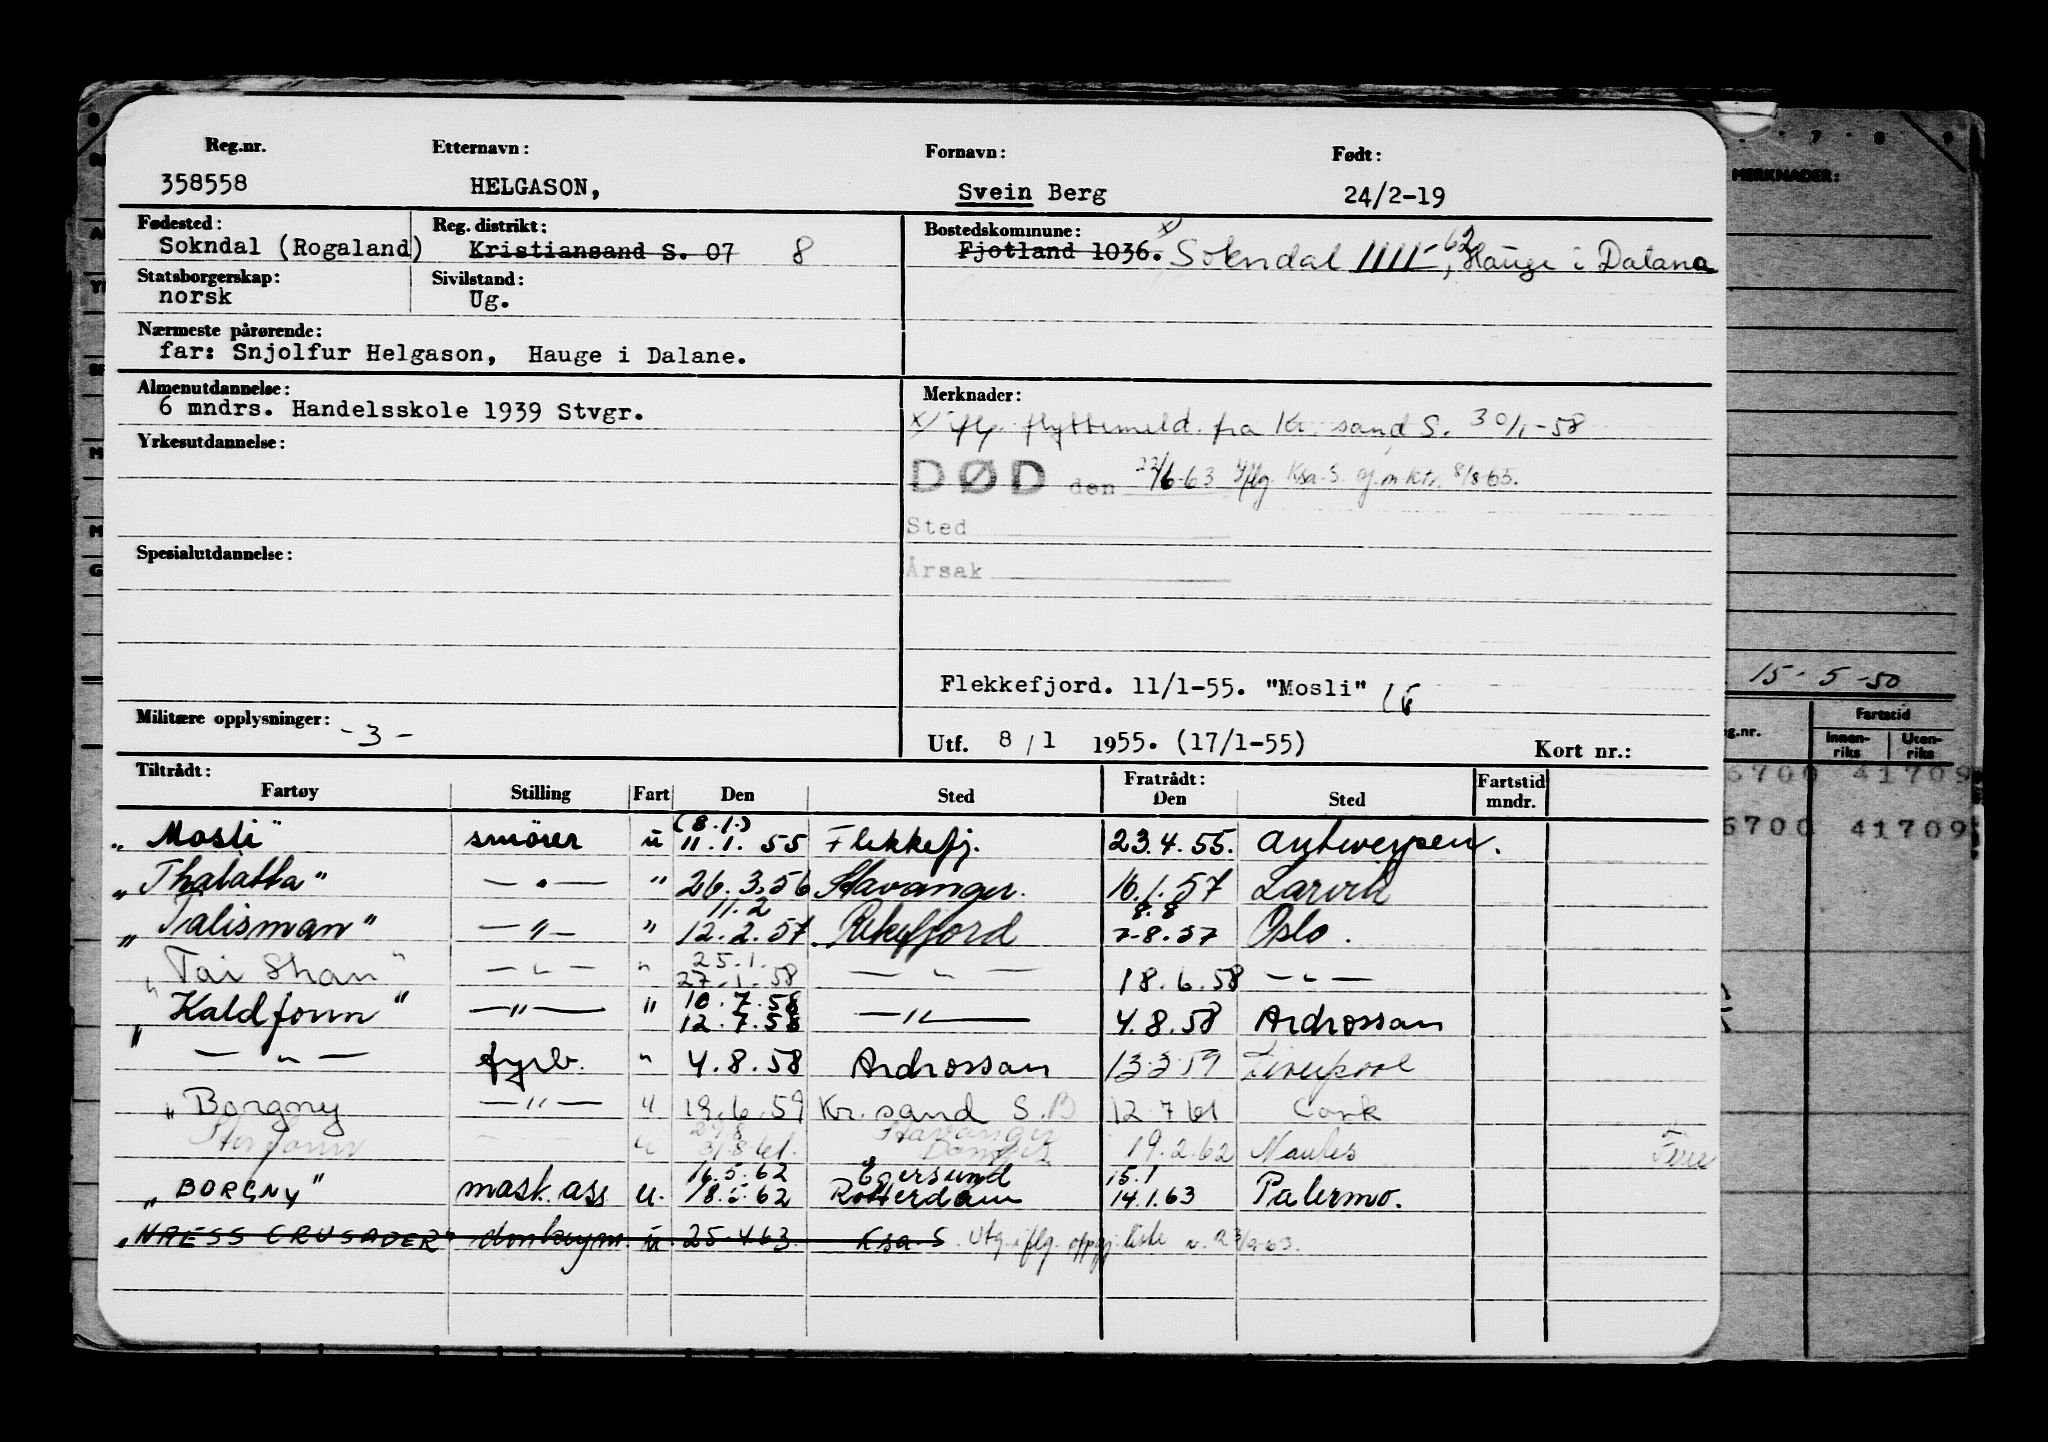 Reg.nr. Etternavn: Fornavn: Født:
358558 HELGASON, Svein Berg 24/2-19
Fødested: Reg. distrikt: Bostedskommune: x)
Sokndal (Rogaland) Kristiansand S. 07 8 Fjotland 1036. Sokndal 1111-62, Hauge i Dalane
Statsborgerskap: Sivilstand:
norsk Ug.
Nærmeste pårørende:
far: Snjolfur Helgason, Hauge i Dalane.
Almenutdannelse: Merknader:
6 mndrs. Handelsskole 1939 Stvgr.
x) ifl. flyttemeld. fra Kr.sand S. 30/1-58
Yrkesutdannelse:
DØD den 22/6-63 iflg. Ksa. S. 8/8-65.
Sted
Spesialutdannelse:
Årsak
Flekkefjord. 11/1-55. "Mosli"
15-5-50
Militære opplysninger: -3-
Utf. 8/1 1955. (17/1-55) Kort nr.:
g.nr. Fartstid
Innen-riks Uten-riks
MERKNADER:
6700 41709
6700 41709
Tiltrådt: Fratrådt:
Fartøy Stilling Fart Den Sted Den Sted Fartstid mndr.
(8.1.)
"Mosli" smører u 11.1.55 Flekkefj. 23.4.55. Antwerpen.
"Thalatta" — " — " 26.3.56 Stavanger. 16.1.57 Larvik
11.2 8.8
"Talisman" — " — " 12.2.57 Rekefjord 7.8.57 Oslo.
25.1.
"Tai Shan" — " — " 27.1.58 — " — 18.6.58 — " —
10.7.58
"Kaldfonn" — " — " 12.7.58 — " — 4.8.58 Ardrossan
— " — fyrb. " 4.8.58 Ardrossan 13.3.59 Liverpool
"Borgny — " — u 19.6.59 Kr.sand S. 12.7.61 Cork
29.8 Stavanger
u 31.8.61. 19.2.62 Nantes
16.5.62 Egersund 15.1
"BORGNY" mask.ass u. 18.5.62 Rotterdam 14.1.63 Palermo.
"NAESS CRUSADER" donkeym. u 25.4.63. Ksa. S. Utg. iflg. oppgj.liste